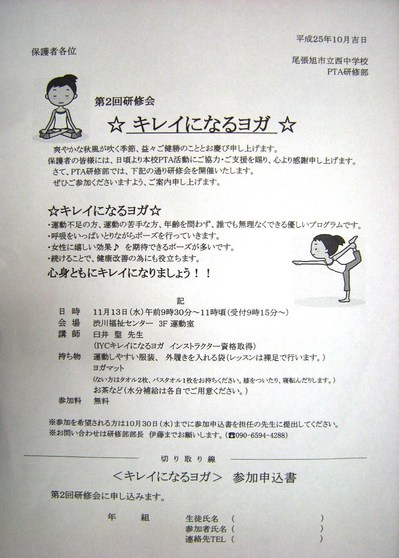 平成25年10月吉日
保護者各位
尾張旭市立西中学校
PTA研修部
第2回研修会
☆ キレイになるヨガ ☆
爽やかな秋風が吹く季節、益々ご健勝のこととお慶び申し上げます。
保護者の皆様には、日頃より本校PTA活動にご協力・ご支援を賜り、心より感謝申し上げます。
さて、PTA研修部では、下記の通り研修会を開催いたします。
ぜひご参加くださいますよう、ご案内申し上げます。
☆キレイになるヨガ☆
・運動不足の方、運動の苦手な方、年齢を問わず、誰でも無理なくできる優しいプログラムです。
・呼吸をいっぱいとりながらポーズを行っていきます。
・女性に嬉しい効果♪ を期待できるポーズが多いです。
・続けることで、健康改善の為にも役立ちます。
心身ともにキレイになりましょう！！
記
日 時 11月13日(水)午前9時30分～11時頃(受付9時15分～)
会 場 渋川福祉センター 3F 運動室
講 師 臼井 聖 先生
(IYCキレイになるヨガ インストラクター資格取得)
持ち物 運動しやすい服装、 外履きを入れる袋(レッスンは裸足で行います。)
ヨガマット
(ない方はタオル2枚、バスタオル1枚をお持ちください。膝をついたり、寝転んだりします。)
お茶など(水分補給は各自でご用意ください。)
参加料 無料
※参加を希望される方は10月30日(水)までに参加申込書を担任の先生に提出してください。
※お問い合わせは研修部部長 伊藤までお願いします。(☎090-6594-4288)
切り取り線
＜キレイになるヨガ＞ 参加申込書
第2回研修会に申し込みます。
年 組 生徒氏名 ( )
参加者氏名 ( )
連絡先TEL ( )